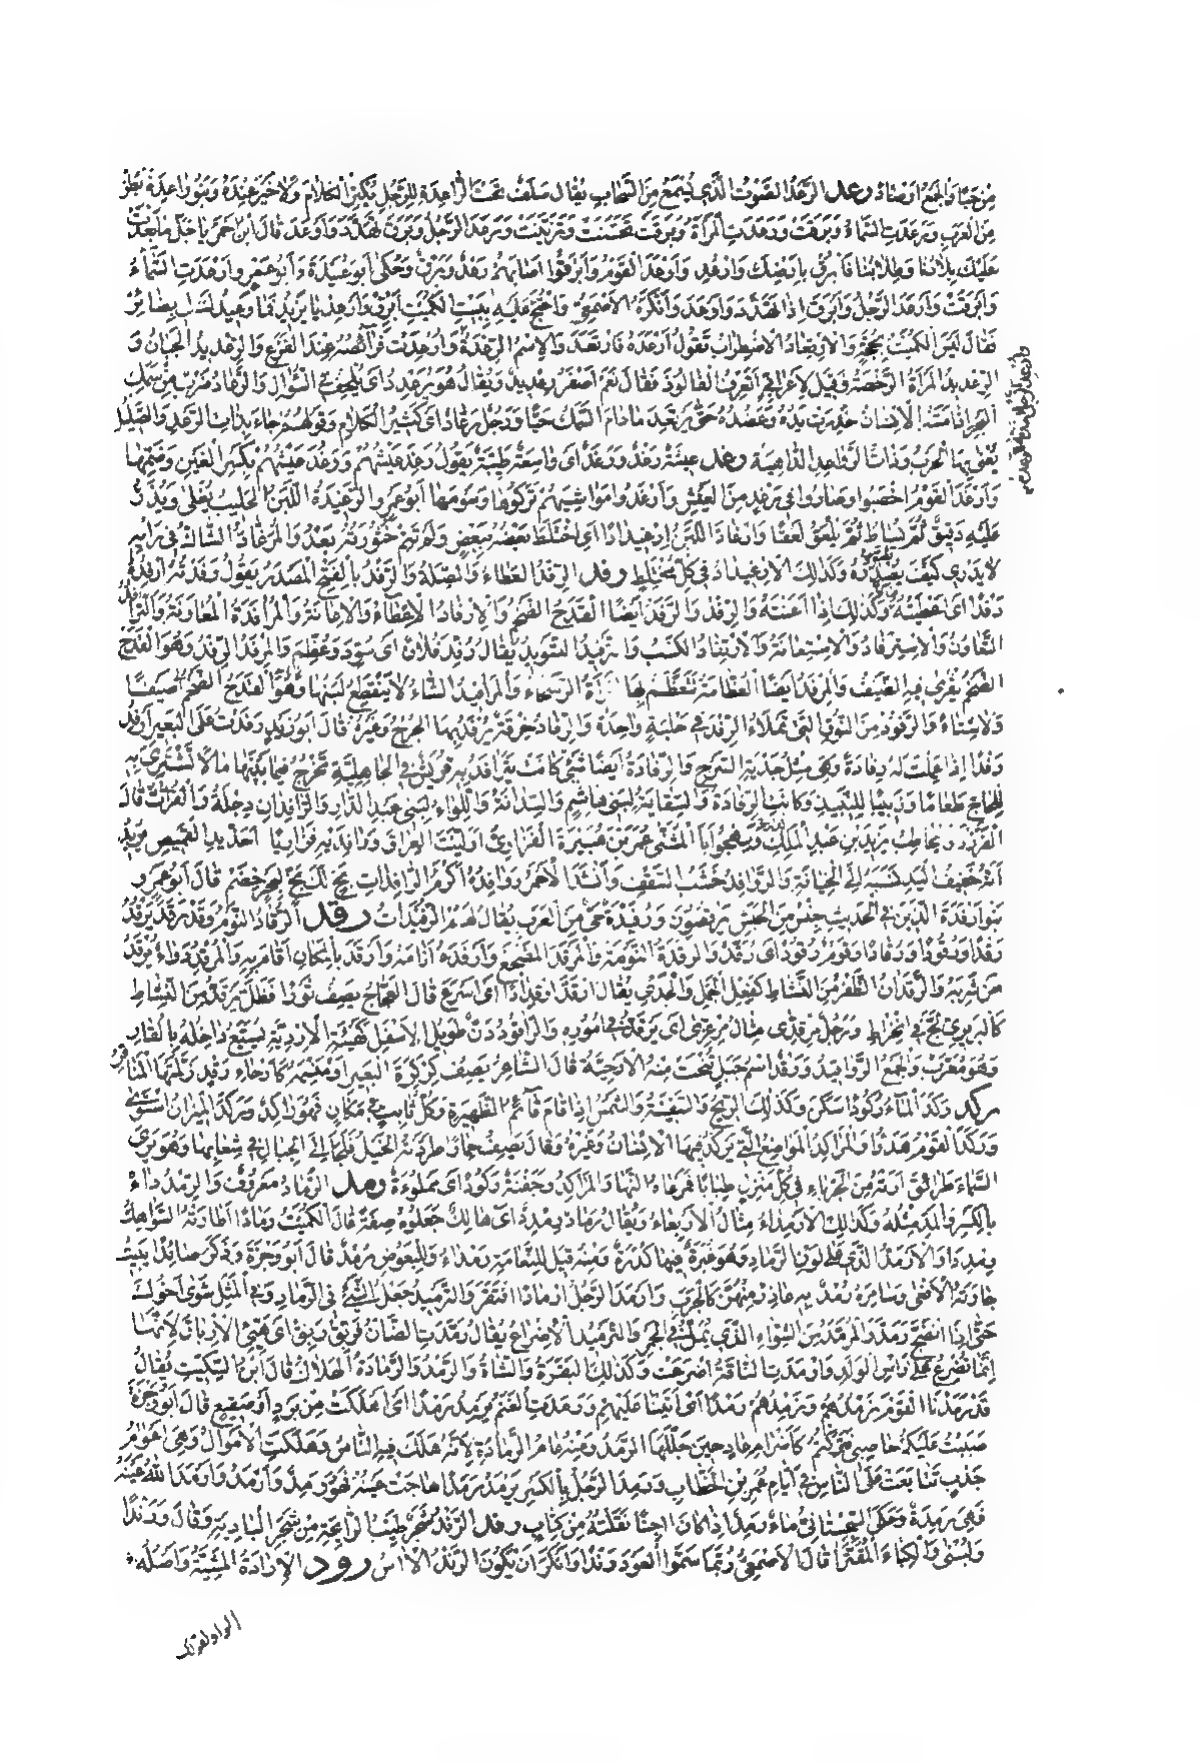 من حيا والجمع ارصاد رعد الرعد الصوت الذي يسمع من السحاب يقال صلف تحت الراعدة للرجل يكثر الكلام ولا خير عنده وبنو راعدة بطن
من العرب ورعدت السماء وبرقت ورعدت المرأة وبرقت تحسنت وتزينت ورعد الرجل وبرق تهدد واوعد قال ابن احمر يا جل ما بعدت
عليك بلادنا وطلابنا فابرق بارضك وارعد وارعد القوم وابرقوا اصابهم رعد وبرق وحكى ابو عبيدة وابو عمرو ارعدت السماء
وابرقت وارعد الرجل وابرق اذا تهدد واوعد وانكره الاصمعي واحتج عليه ببيت الكميت ابرق وارعد يا يزيد فما وعيدك لي بضائر
فقال ليس الكميت بحجة والارتعاد الاضطراب تقول ارعده فارتعد والاسم الرعدة وارعدت فرائصه عند الفزع والرعديد الجبان و
الرعديد المرأة الرخصة وقيل لاعرابي اتعرف الفالوذ فقال نعم اصفر رعديد ويقال هو يرعدد اي يلحف في السؤال والرعاد ضرب من سمك
البحر اذا مسه الانسان خدرت يده وعضده حتى يرتعد ما دام السمك حيا ورجل رعاد اي كثير الكلام وقولهم جاء بذات الرعد والصليل
يعني بها الحرب وذات الرواعد الداهية رغد عيشة رغد ورغد اي واسعة طيبة يقول رغد عيشهم ورغد عيشهم بكسر الغين وضمها
وارغد القوم اخصبوا وصاروا في رغد من العيش وارغدوا مواشيهم تركوها وسومها ابو عمرو الرغيدة اللبن الحليب يغلى ويذر
عليه دقيق ثم يساط ثم يلعق لعقا وارغاد اللبن ارغيدادا اي اختلط بعضه ببعض ولم تتم خثورته بعد والمرغاد الشاك في رايه
لا يدري كيف يصدره وكذلك الارغيداد في كل مختلط رفد الرفد العطاء والصلة والرفد بالفتح المصدر يقول رفدته ارفده
رفدا اي اعطيته وكذلك اذا اعنته والرفد والرفد ايضا القدح الضخم والارفاد الاعطاء والاعانة والمرافدة المعاونة والترافد
التعاون والاسترفاد والاستعانة والارتفاد الكسب والترفيد التسويد يقال رفد فلان اي سود وعظم والمرفد الرفد وهو القدح
الضخم يقرى فيه الضيف والمرفد ايضا العظامة تتعظم بها المرأة الرسحاء والمرافيد الشاء لا ينقطع لبنها وهو القدح الضخم صيفا
ولا شتاء والرفود من النوق التي تملأ الرفد في حلبة واحدة والرفاد خرقة يرفد بها الجرح وغيره قال ابو زيد رفدت على البعير ارفد
رفدا اذا عملت له رفادة وهي مثل جدية السرج والرفادة ايضا شيء كانت يترافد به قريش في الجاهلية تخرج فيما بينها مالا تشتري به
للحاج طعاما وزبيبا للنبيذ وكانت الرفادة والسقاية لبني هاشم والسدانة واللواء لبني عبد الدار والرافدان دجلة والفرات قال
الفرزدق يخاطب يزيد بن عبد الملك ويهجو ابا المثنى عمر بن هبيرة الفزاري اوليت العراق ورافديه فزاريا احذ يد القميص يريد
انه خفيف اليد نسبه الى الخيانة والروافد خشب السقف وانشد الاحمر روافده اكرم الرافدات بخ لك بخ لبحر خضم قال ابو عمرو
بنو ارفدة الذين في الحديث جنس من الحبش يرقصون ورفيدة حي من العرب يقال لهم الرفيدات رقد الرقاد النوم وقد رقد يرقد
رقدا ورقودا ورقادا وقوم رقود اي رقد والرقدة النومة والمرقد المضجع وارقده انامه وارقد بالمكان اقام به والمرقد دواء يرقد
من شربه والرقدان الطفر من النشاط كفعل الحمل والجدي يقال ارقد ارقدادا اي اسرع قال العجاج يصف ثورا فظل يرقد من النشاط
كالبربري لج في انخراط ورجل مرقدى مثال مرعزى اي يرقد في اموره والراقود دن طويل الاسفل كهيئة الاردبة يسيع داخله بالقار
وهو معرب والجمع الرواقيد ورقد اسم جبل تنحت منه الارحية قال الشاعر يصف كركرة البعير او منسمه كارحاء رقد زلمتها المناقر
ركد ركد الماء ركودا سكن وكذلك الريح والسفينة والشمس اذا قام قائم الظهيرة وكل ثابت في مكان فهو راكد وركد الميزان استوى
وركد القوم هدوا والمراكد المواضع التي يركد فيها الانسان وغيره وقال يصف حمارا طردته الخيل فلجأ الى الجبال في شعابها وهو يرى
السماء طرائق ارته من الجرباء في كل منزل طبابا فمرعاه النهار المراكد وجفنة ركود اي مملوءة رمد الرماد معروف والرمدداء
بالكسر والمد مثله وكذلك الارمداء مثال الاربعاء ويقال رماد رمدد اي هالك جعلوه صفة قال الكميت رمادا اطارته السواهك
رمددا والارمد الذي على لون الرماد وهو غبرة فيها كدرة ومنه قيل للنعامة رمداء وللبعوض رمد قال ابو وجزة وذكر صائدا يبيت
جارته الافعى وسامره رمد به عاذر منهن كالجرب وارمد الرجل ارمادا افتقر والترميد جعل الشيء في الرماد وفي المثل شوى اخوك
حتى اذا انضج رمد والمرمد من الشواء الذي يمل في الجمر والترميد الاضراع يقال رمدت الضان فربق ربق اي هيئ الارباق لانها
انما تضرع على راس الولد وارمدت الناقة اضرعت وكذلك البقرة والشاة والرمد والرمادة الهلاك قال ابن السكيت يقال
قد رمدنا القوم نرمدهم ونرمدهم رمدا اي اتينا عليهم ورمدت الغنم ترمد رمدا اي اهلكت من برد او صقيع قال ابو وجزة
صببت عليكم حاصبي فتركتكم كاصرام عاد حين جللها الرمد ومنه عام الرمادة لانه هلك فيه الناس وهلكت الاموال وهي اعوام
جدب تتابعت على الناس في ايام عمر بن الخطاب ورمد الرجل بالكسر يرمد رمدا هاجت عينه فهو رمد وارمد وارمد الله عينه
فهي رمدة وحكى السجستاني ماء رمد اذا كان اجنا نقلته من كتاب رند الرند شجر طيب الرائحة من شجر البادية وقال ورندا
ولبنى والكباء المقترا قال الاصمعي وربما سموا العود رندا وانكر ان يكون الرند الآس رود الارادة المشيئة واصله